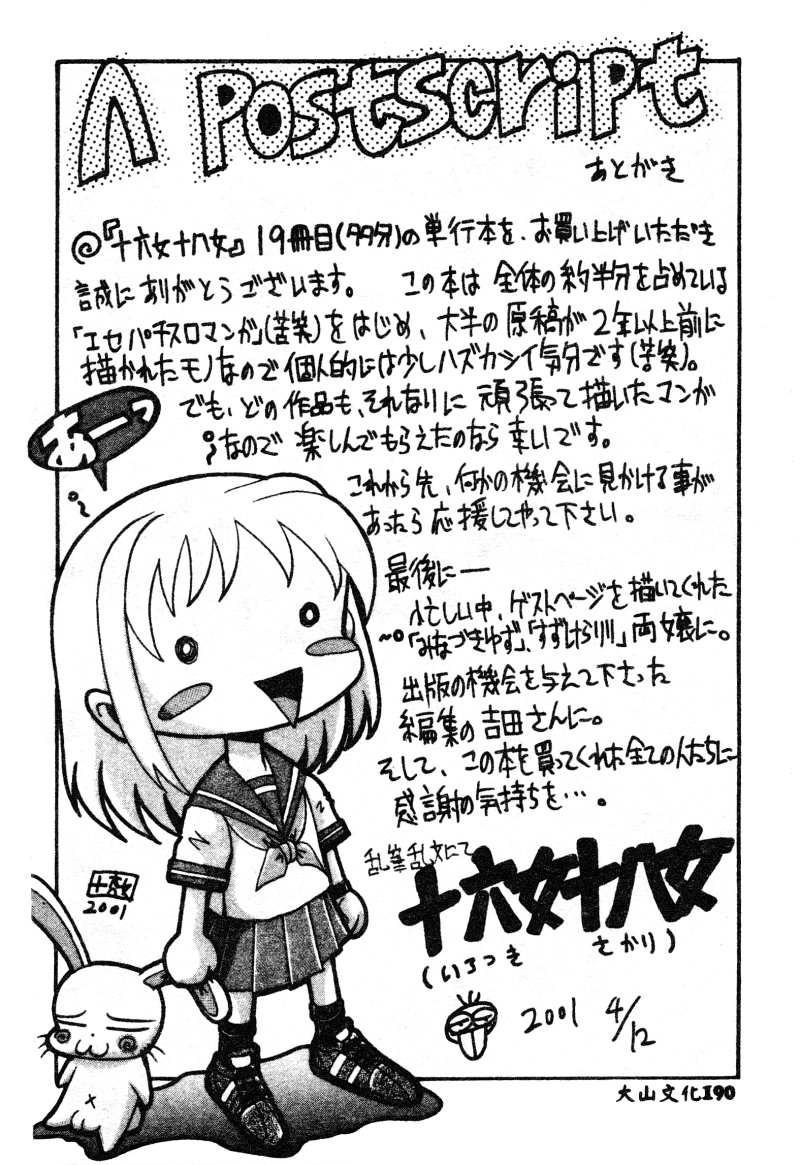 A Postscript
あとがき
@『十六女十八女』19冊目(タタ分)の単行本を、お買い上げいただき
誠にありがとうございます。 この本は 全体の約半分を占めている
「エセパチスロマンガ」(苦笑)をはじめ、大半の原稿が2年以上前に
描かれたモノなので個人的には少しハズカシイ気分です(苦笑)。
でも、どの作品も、それなりに頑張って描いたマンガ
なので楽しんでもらえたのなら幸いです。
あーっ
これから先、何かの機会に見かける事が
あったら応援してやって下さい。
最後に—
忙しい中、ゲストページを描いてくれた
「みなづきゆず」、「すずけらりり」両嬢に。
出版の機会を与えて下さった
編集の吉田さんに。
そして、この本を買ってくれた全ての人たちに
感謝の気持ちを…。
乱筆乱文にて
十六女十八女
(いろつき さかり)
2001 4/12
2001
大山文化I90